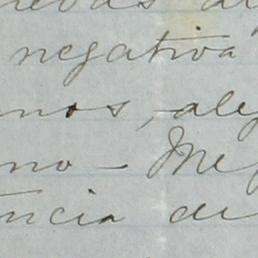 negativa
nos, ale
no - Me
ncia de